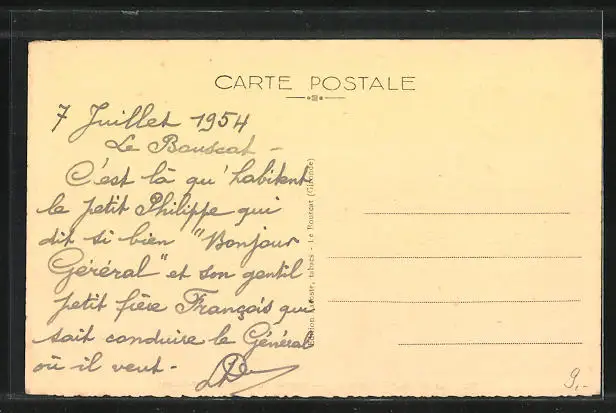 CARTE POSTALE
7 Juillet 1954
Le Bouscat -
C'est là qu'habitent
le petit Philippe qui
dit si bien "Bonjour
Général" et son gentil
petit frère François qui
sait conduire le Général
où il veut -
tabacs - Le Bouscat (Gironde)
9,-